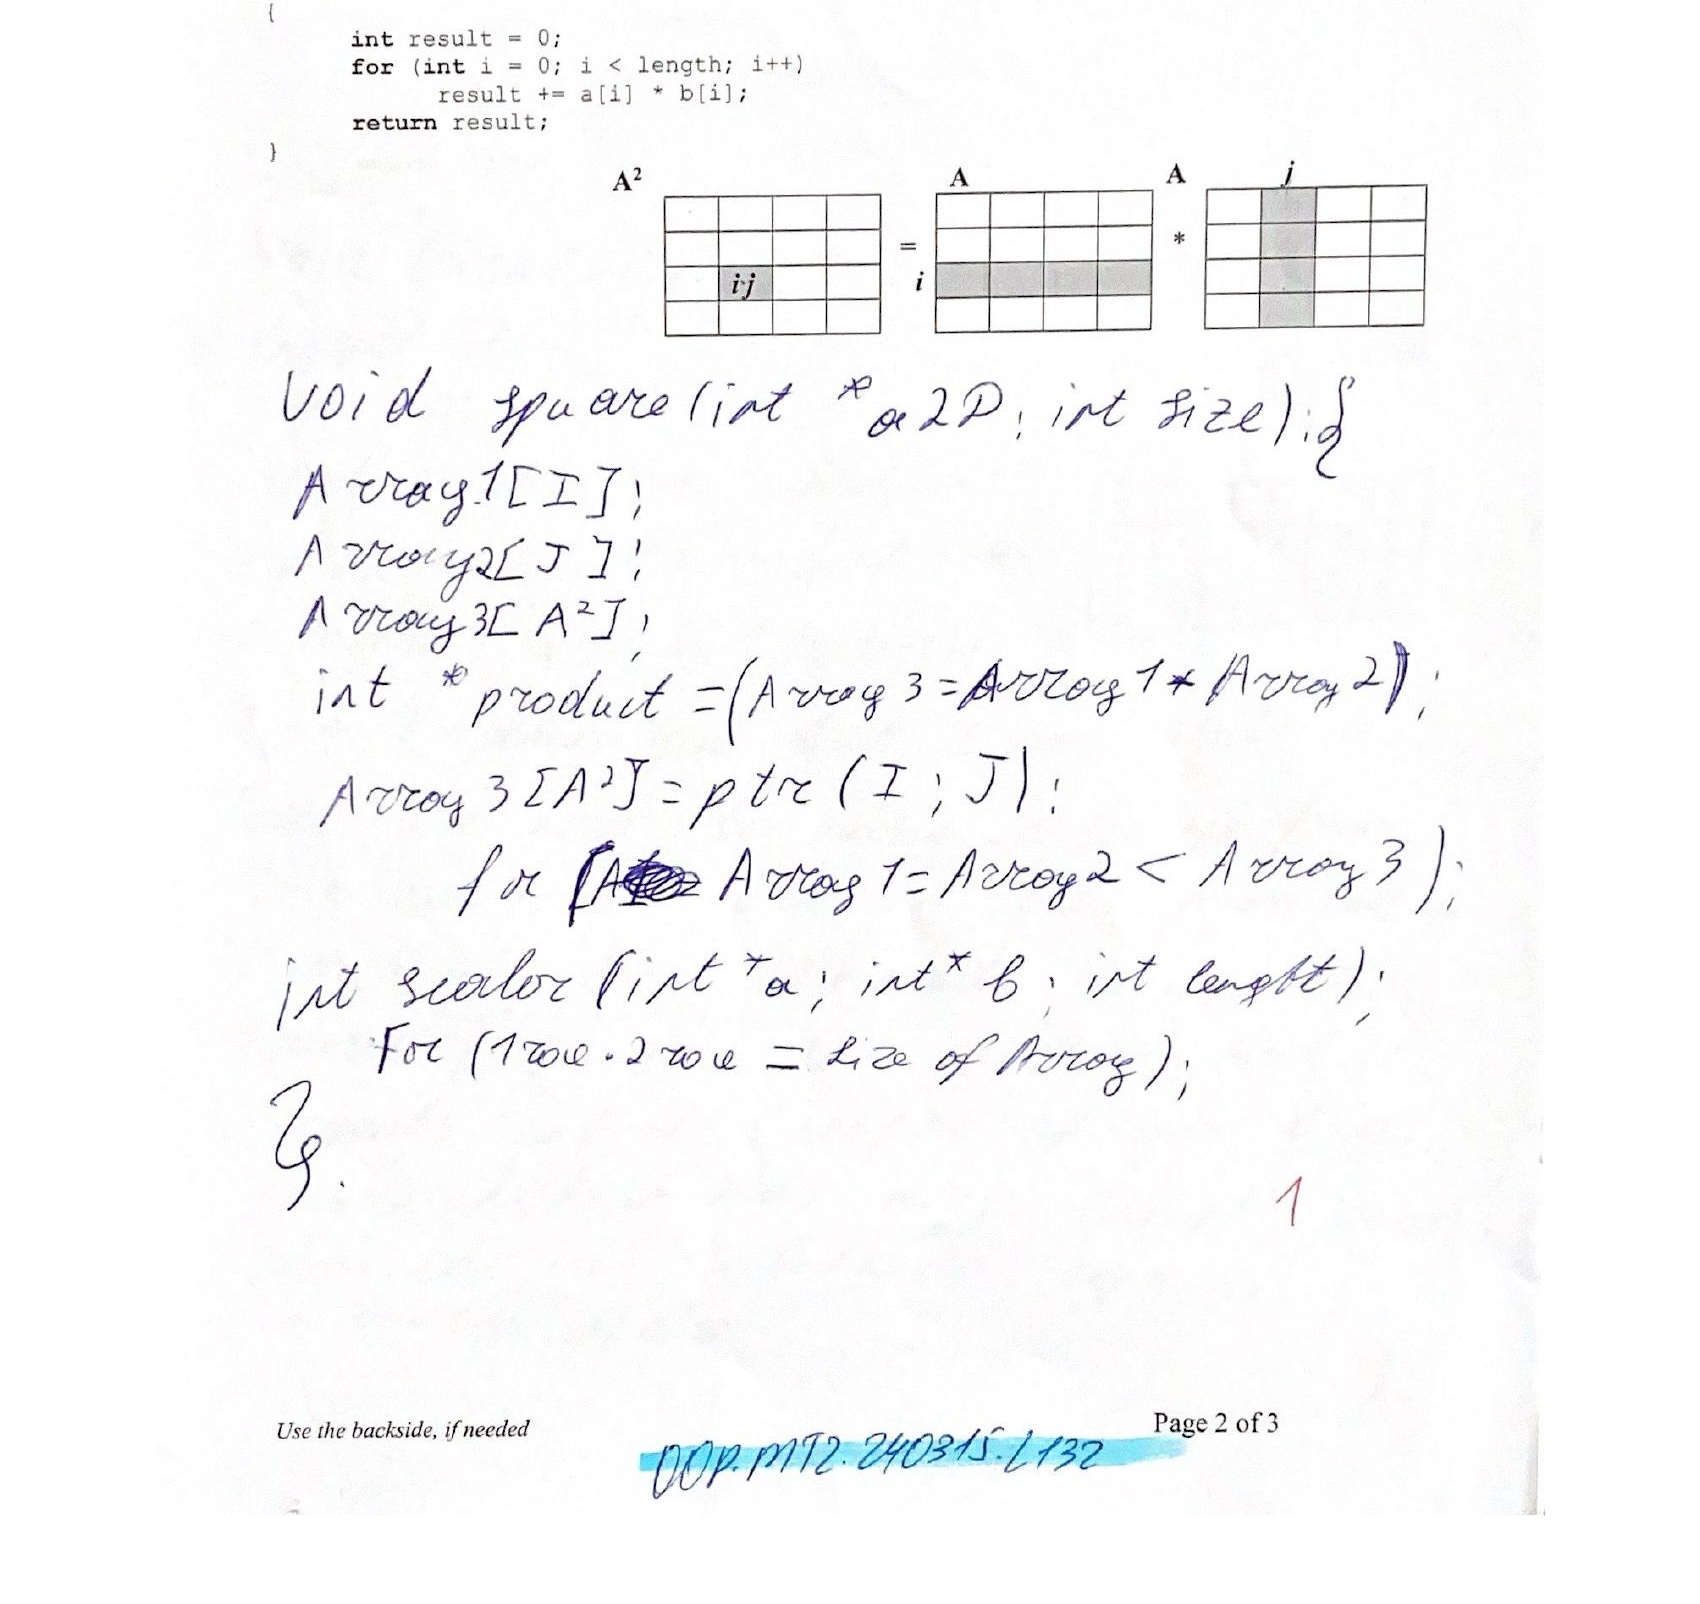 {
int result = 0;
for (int i = 0; i < length; i++)
result += a[i] * b[i];
return result;
}
A² A A j
= *
i·j i
void square (int *a2D; int size);{
Array1[I];
Array2[J];
Array3[A²];
int *product =(Array3=Array1*Array2);
Array3[A²]=ptr(I;J);
for (Array1=Array2<Array3);
int scalar (int *a; int* b; int lenght);
For (1row.2row = size of Array);
}.
1
Use the backside, if needed
Page 2 of 3
OOP.MT2.240315.L132